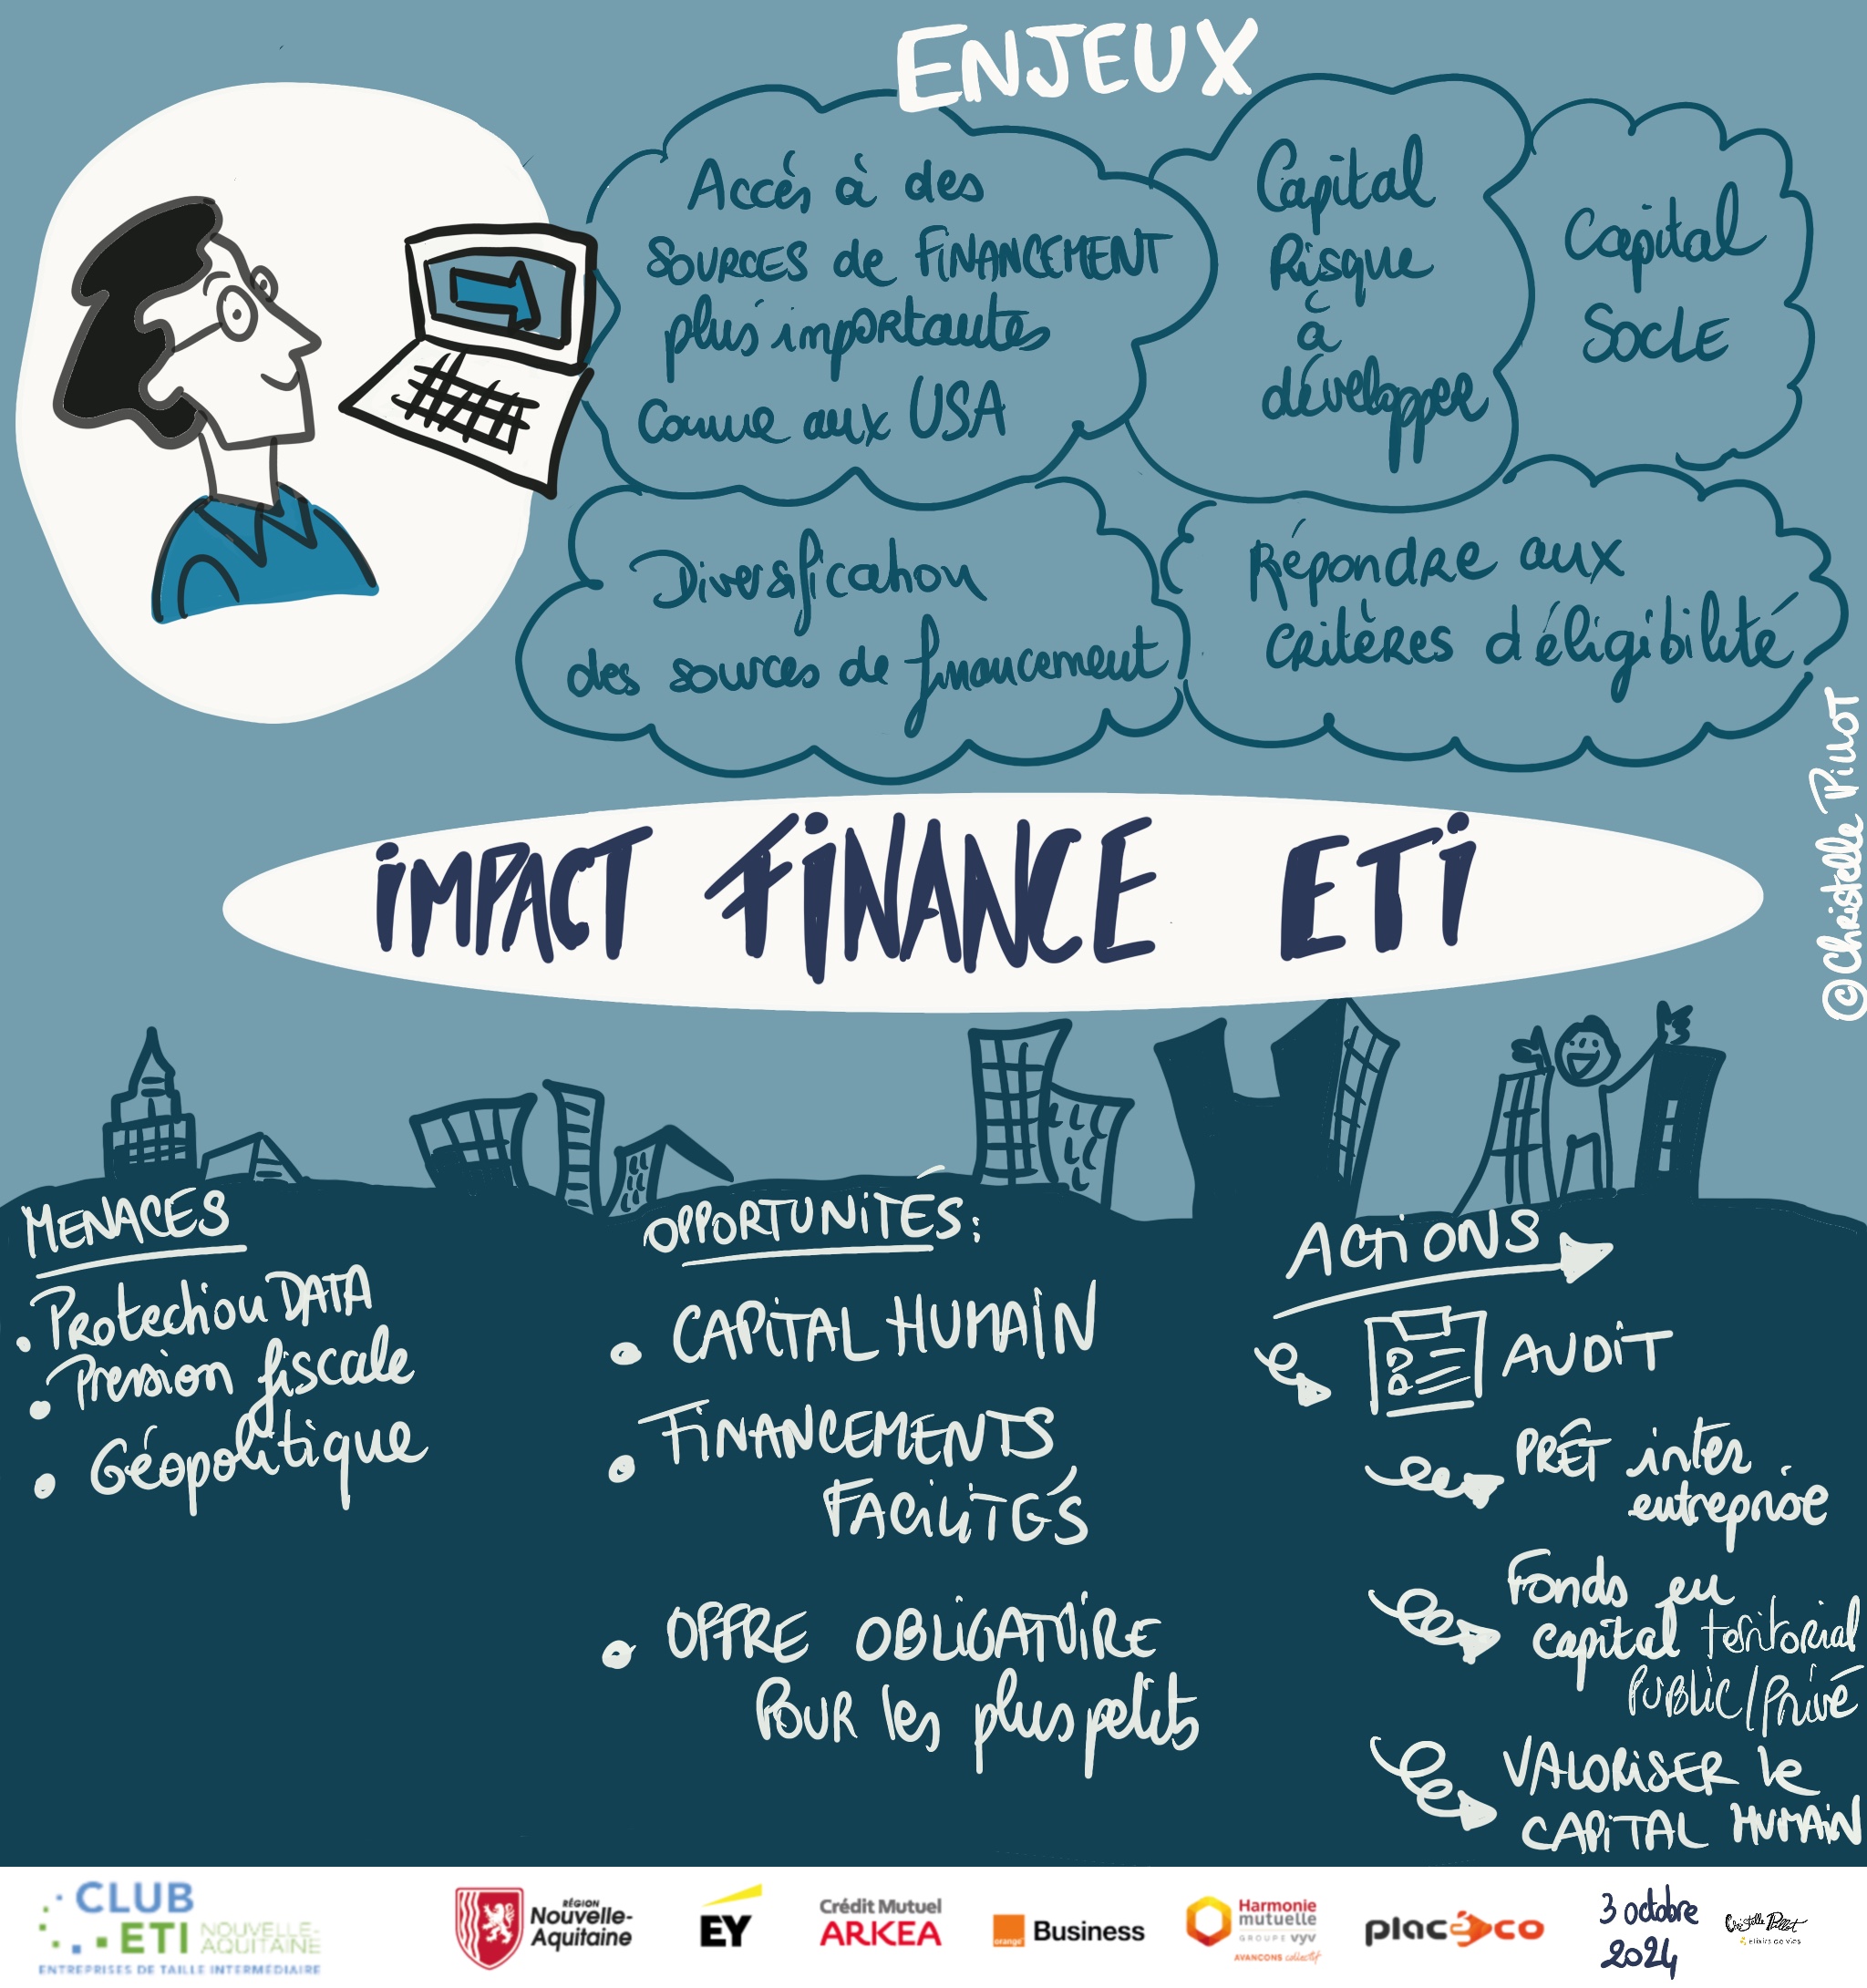 ENJEUX
Accés à des
SOURCES de FINANCEMENT
plus importantes
Comme aux USA
Capital
Risque
à
développer
Capital
SOCLE
Diversification
des sources de financement
Répondre aux
critères d'éligibilité
©Christelle Pillot
IMPACT FINANCE ETI
MENACES
• Protection DATA
• Pression fiscale
• Géopolitique
OPPORTUNITÉS:
• CAPITAL HUMAIN
• FINANCEMENTS
FACILITÉS
• OFFRE OBLIGATOIRE
POUR les plus petits
ACTIONS
AUDIT
PRÊT inter
entreprise
Fonds en
capital territorial
PUBLIC/Privé
VALORISER le
CAPITAL HUMAIN
CLUB
ETI NOUVELLE-
AQUITAINE
ENTREPRISES DE TAILLE INTERMÉDIAIRE
RÉGION
Nouvelle-
Aquitaine
EY
Crédit Mutuel
ARKEA
orange
Business
Harmonie
mutuelle
GROUPE vyv
AVANÇONS collectif
placéco
3 octobre
2024
Christelle Pillot
elixirs de vies